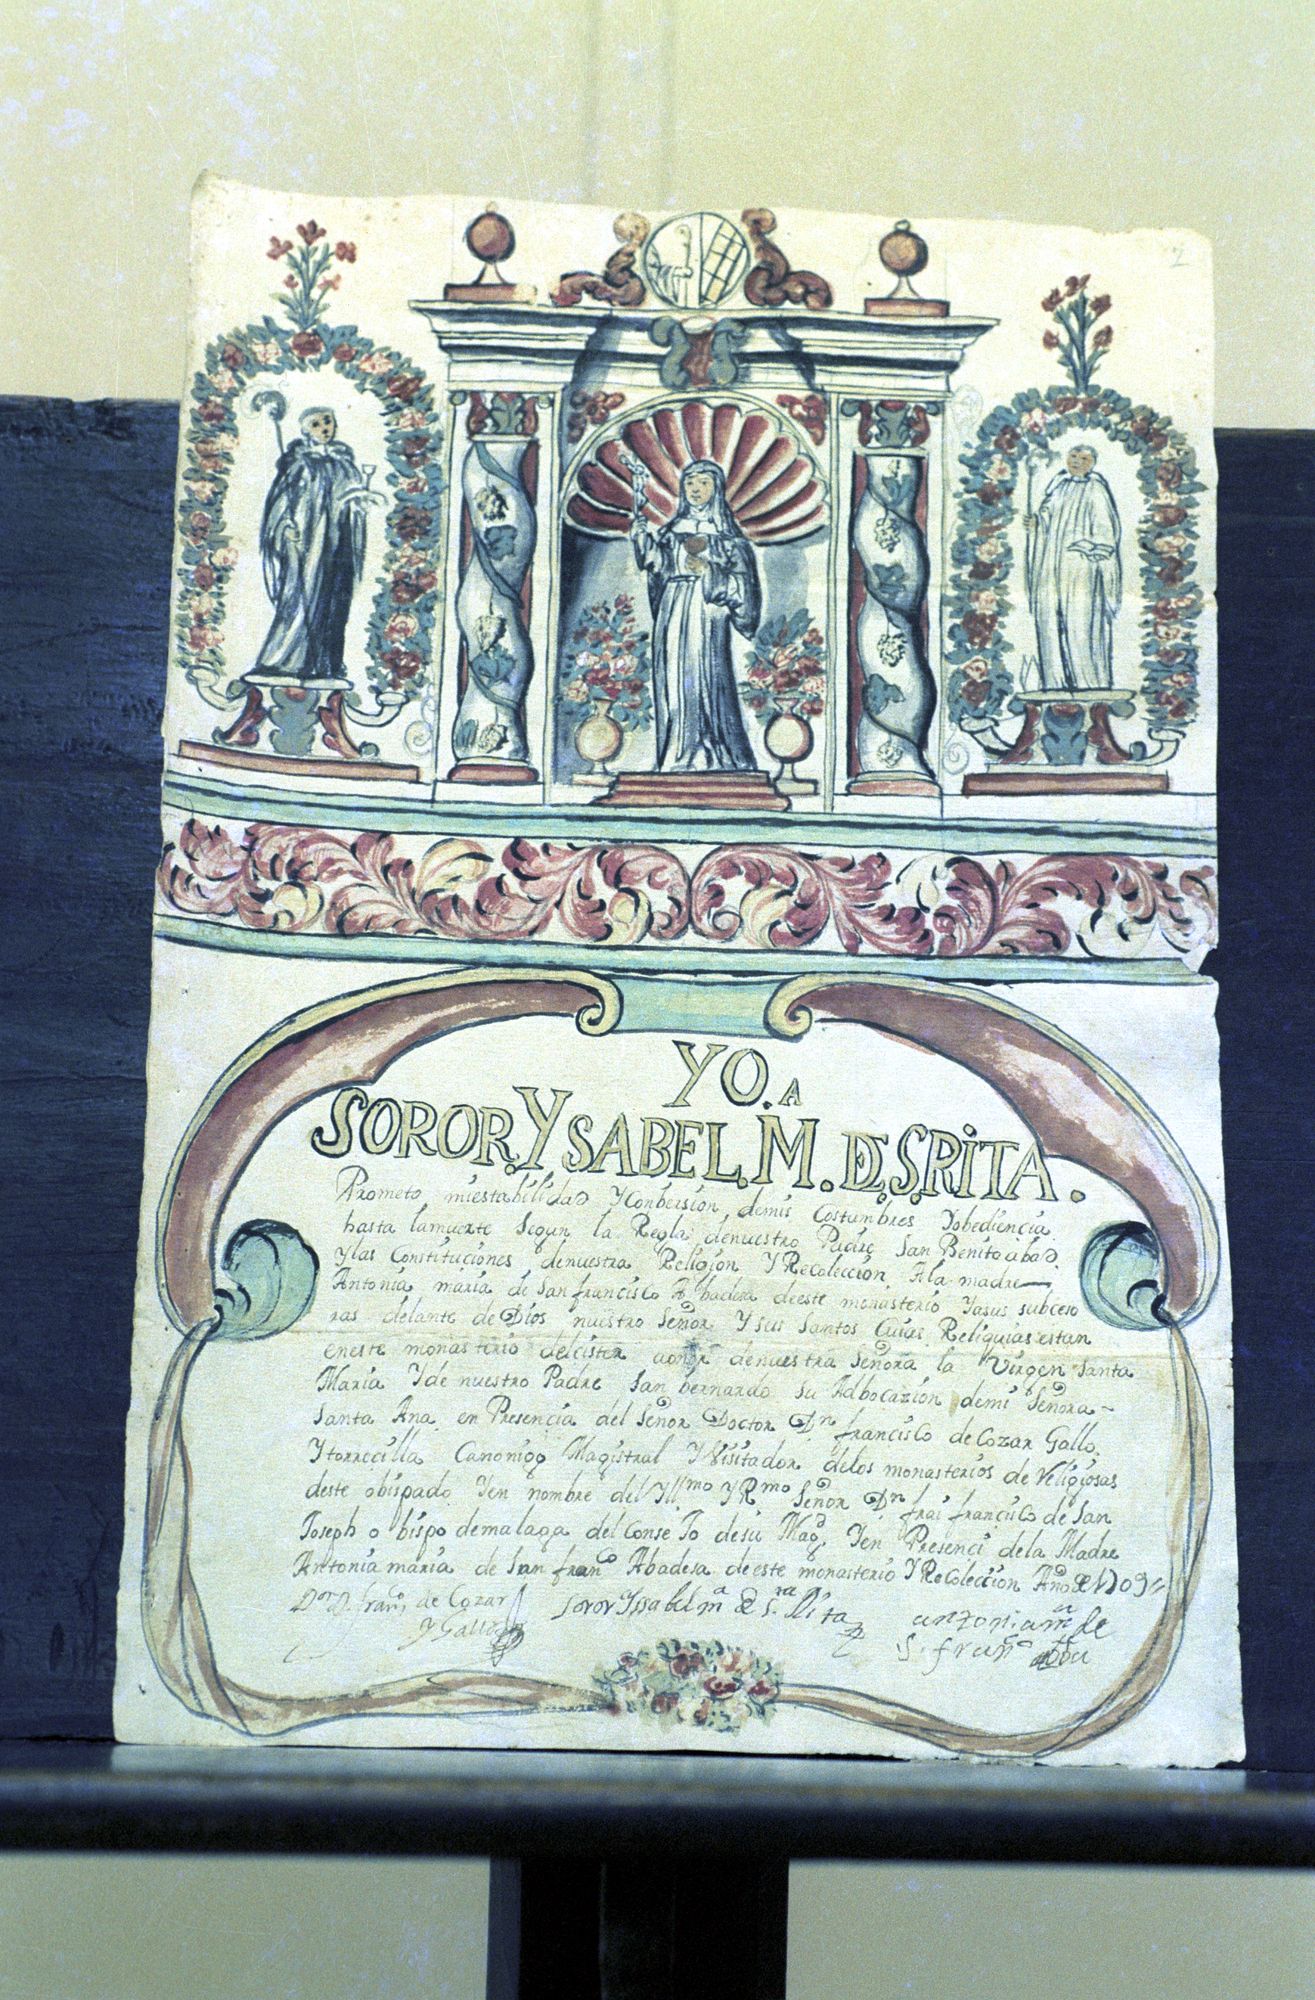 2
YO. A
SOROR. YSABEL. M. DE. S. RITA.
Prometo, miestabilidad Yconbersion, demis Costumbres Yobediencia
hasta lamuerte Segun la Regla denuestro Padre San Benito abad
Ylas Constituciones denuestra Religion YRecoleccion, Ala madre
Antonia maria de San francisco Abadesa deeste monasterio Yasus subceso
ras delante de Dios nuestro Señor Ysus Santos Cuias Reliquias estan
eneste monasterio delcister aonor denuestra Señora la Virgen Santa
Maria Yde nuestro Padre San bernardo su Adbocazion demi Señora
Santa Ana, en Presencia del Señor Doctor Dn francisco de Cozar Gallo,
Ytorrecilla Canonigo Magistral YVisitador delos monasterios de Religiosas
deste obispado Yen nombre del Yllmo YRmo Señor Dn frai francisco de San
Joseph obispo demalaga del Conse Jo desu Magd, Yen Presenci dela Madre
Antonia maria de San franco Abadesa deeste monasterio YRecoleccion Año de 1709
Dor D. franco de Cozar Soror Yssabel ma de Sta Rita antoniama de
y Gallo S. franco Aba